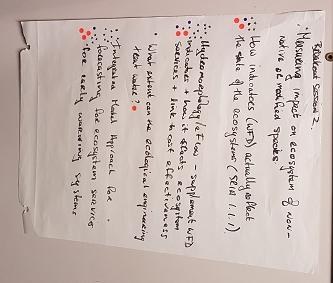 Breakout Session 2.
• Measuring impact on ecosystem of non-
native or modified species
• How indicators (WFD) actually reflect
the state of the ecosystems (SPIA 1.1.1)
• Hydromorphology/eFlow – supplement WFD
indicators + how it effects ecosystem
services + link to cost effectiveness
• What extent can the ecological engineering
treat water?
• Integrative Model Approach for
forecasting for ecosystem services
for early warning systems